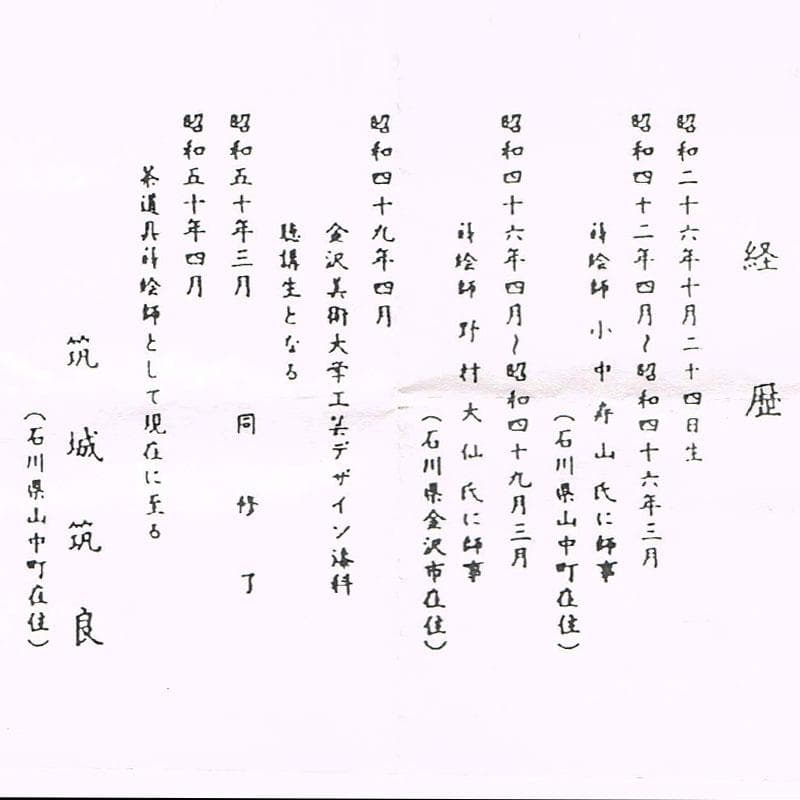 経歴
昭和二十六年十月二十四日生
昭和四十二年四月〜昭和四十六年三月
蒔絵師 小中 山氏に師事
(石川県山中町在住)
昭和四十六年四月〜昭和四十九月三月
蒔絵師 野村大仙氏に師事
(石川県金沢市在住)
昭和四十九年四月
金沢美術大学工芸デザイン漆科
聴講生となる
昭和五十年三月 同修了
昭和五十年四月
茶道具蒔絵師として現在に至る
筑城筑良
(石川県山中町在住)